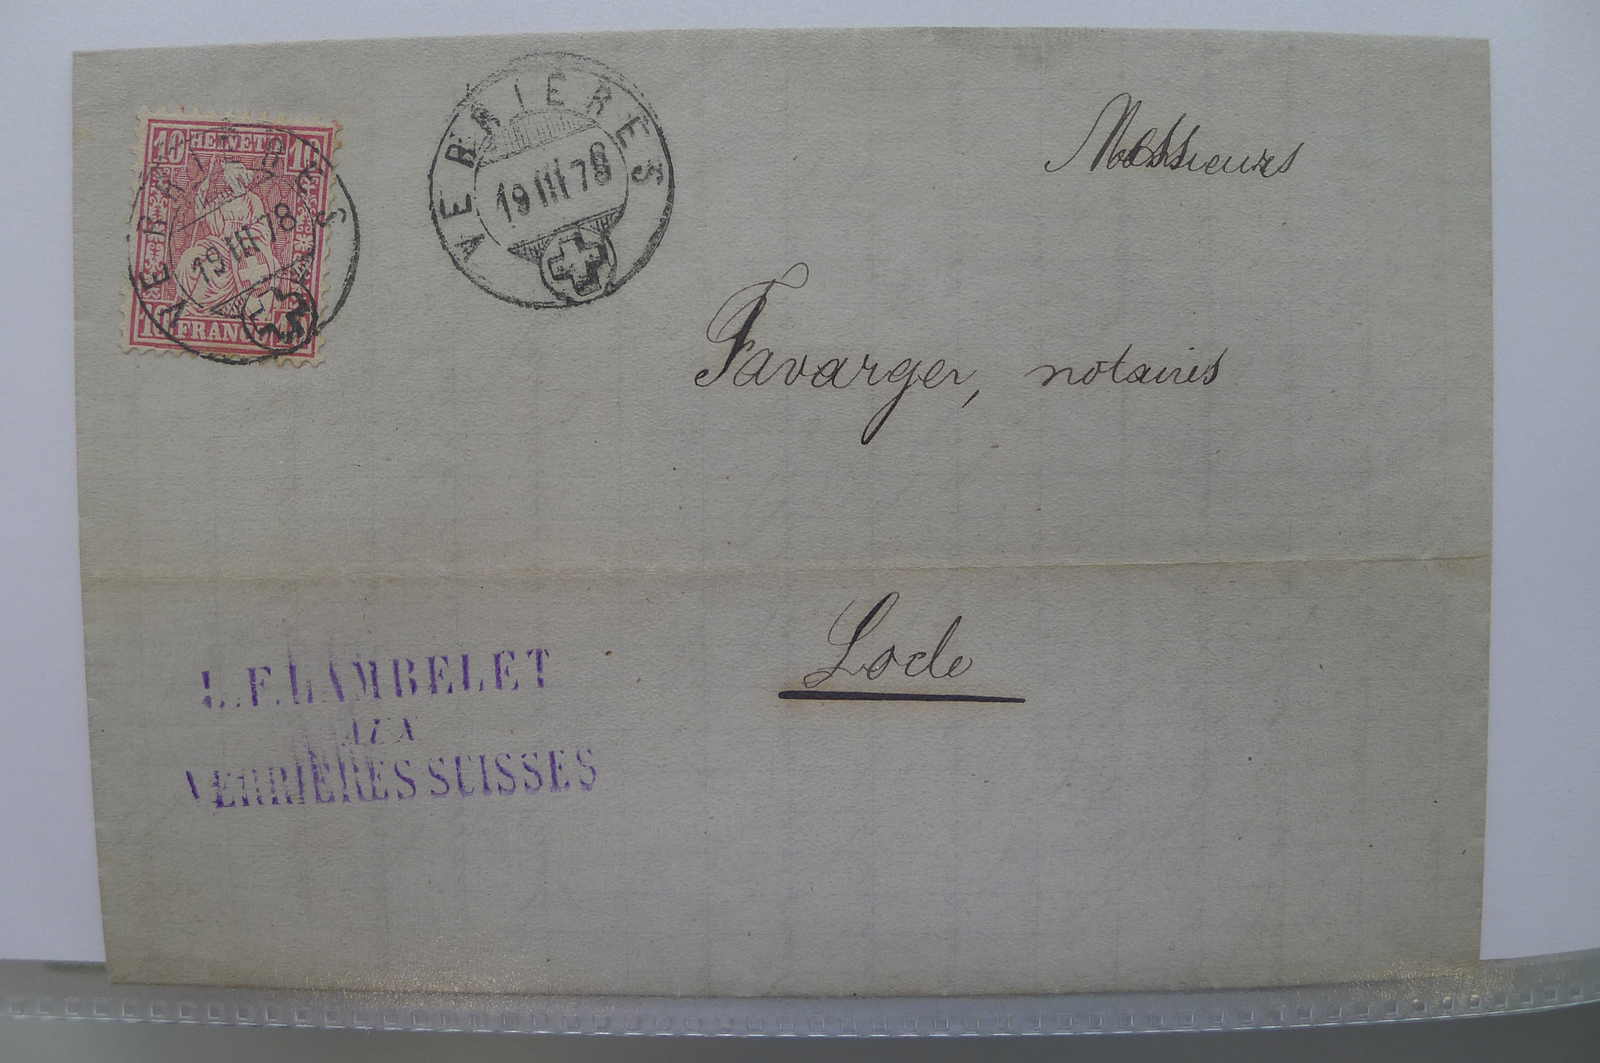 VERRIERES
19 III 78
10 HELVETIA 10
VERRIERES
19 III 78
10 FRANCO 10
Messieurs
Favarger, notaires
Locle
L.F. LAMBELET
AUX
VERRIERES SUISSES